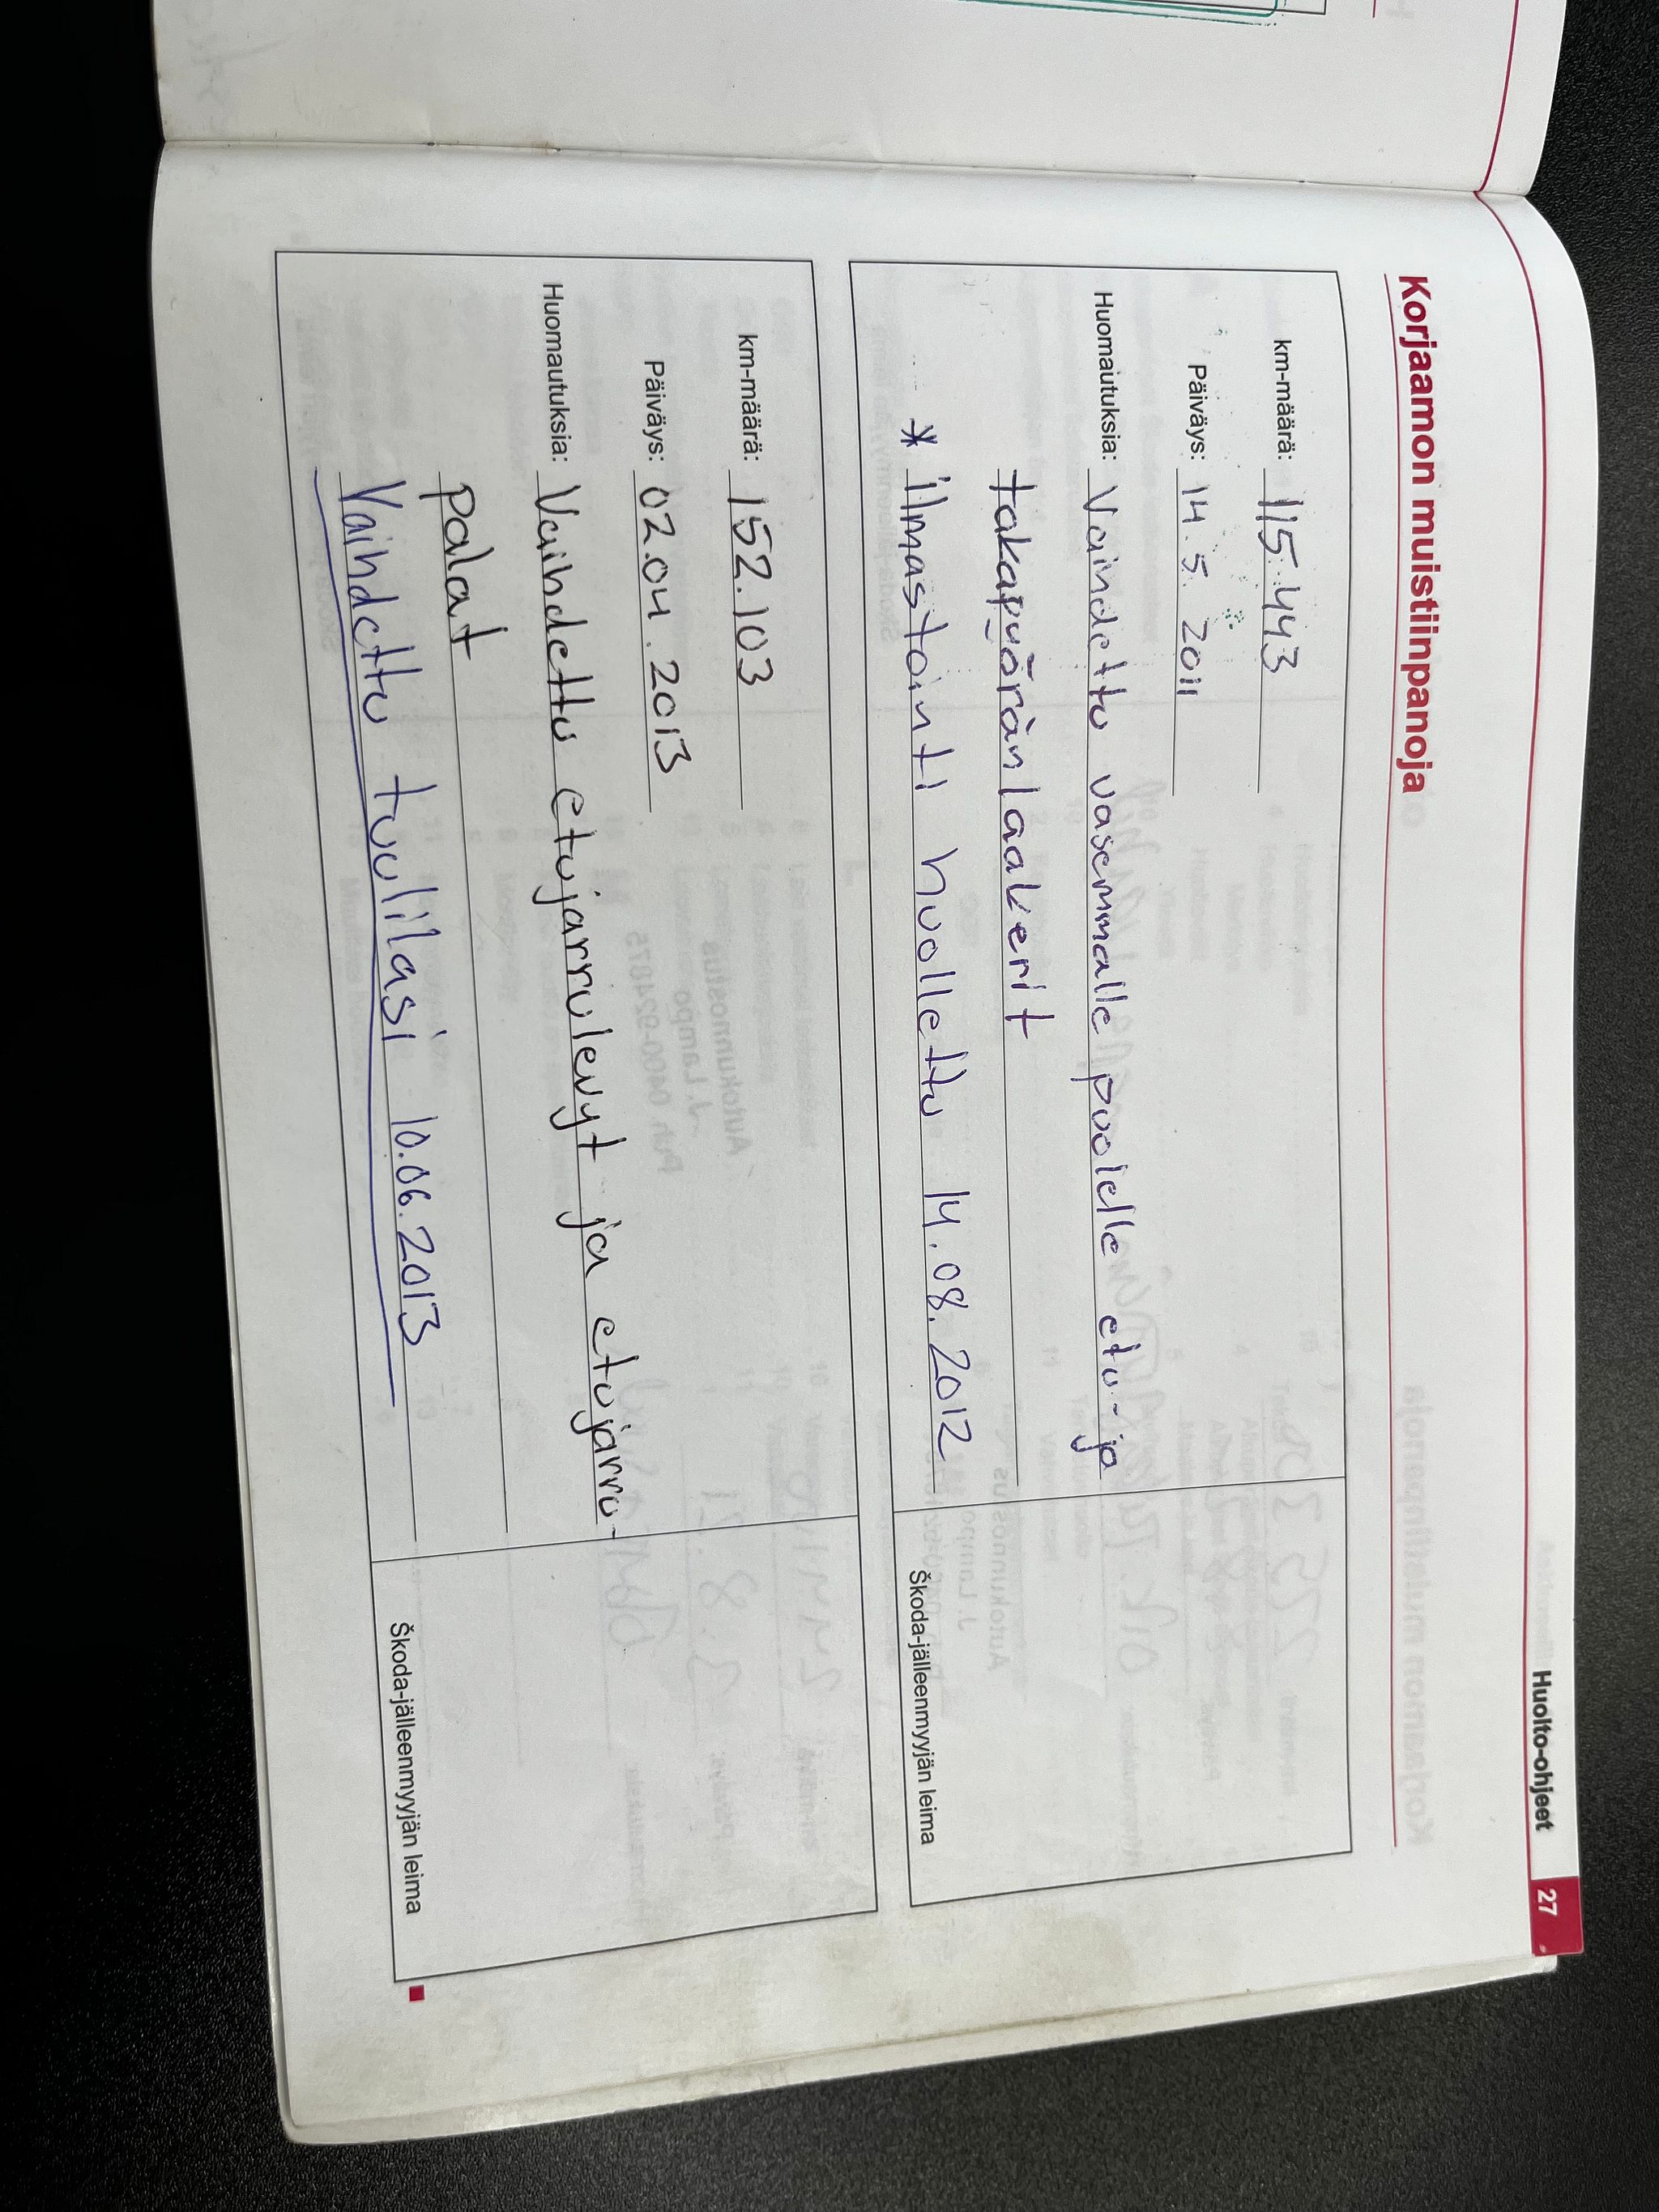 Huolto-ohjeet 27
Korjaamon muistiinpanoja
km-määrä: 115.443
Päiväys: 14.5.2011
Huomautuksia: Vaihdettu vasemmalle puolelle etu- ja
takapyörän laakerit
* ilmastointi huollettu 14.08.2012
Škoda-jälleenmyyjän leima
km-määrä: 152.103
Päiväys: 02.04.2013
Huomautuksia: Vaihdettu etujarrulevyt ja etujarru-
palat
Vaihdettu tuulilasi 10.06.2013
Škoda-jälleenmyyjän leima